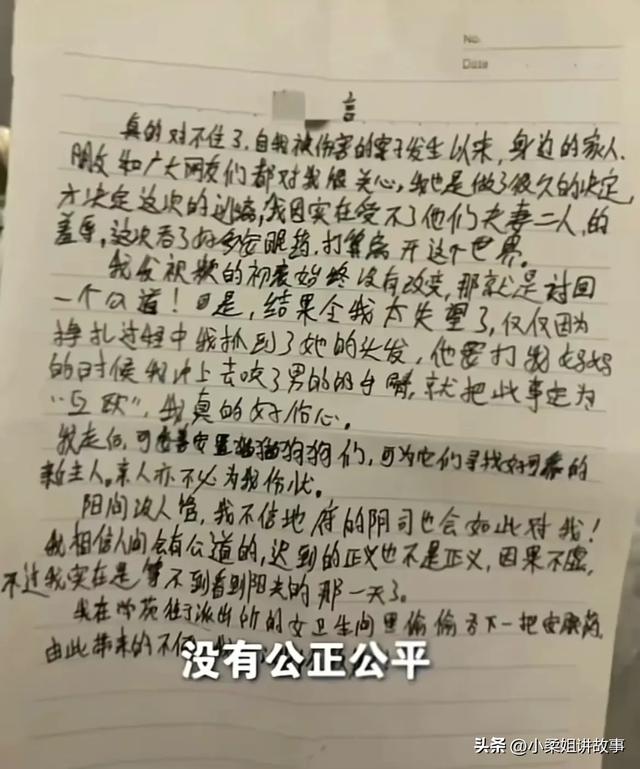 No.
Date
言
真的对不住了,自我被伤害的案子发生以来,身边的家人
朋友和广大网友们都对我很关心,我也是做了很久的决定,
才决定这次的逃避,我因实在受不了他们夫妻二人,的
羞辱,这次吞了好多安眠药,打算离开这个世界。
我发视频的初衷始终没有改变,那就是讨回
一个公道!但是,结果令我太失望了,仅仅因为
挣扎过程中我抓到了她的头发,他要打我妈妈
的时候我冲上去咬了男的的手臂,就把此事定为
“互殴”,我真的好伤心。
我走后,可妥善安置猫猫狗狗们,可为它们寻找好可靠的
新主人。亲人亦不必为我伤忧。
阳间没人管,我不信地府的阴司也会如此对我!
我相信人间会有公道的,迟到的正义也不是正义,因果不虚,
不过我实在是等不到看到阳光的那一天了。
我在学苑街派出所的女卫生间里偷偷吞下一把安眠药,
由此带来的不
没有公正公平
头条 @小柔姐讲故事